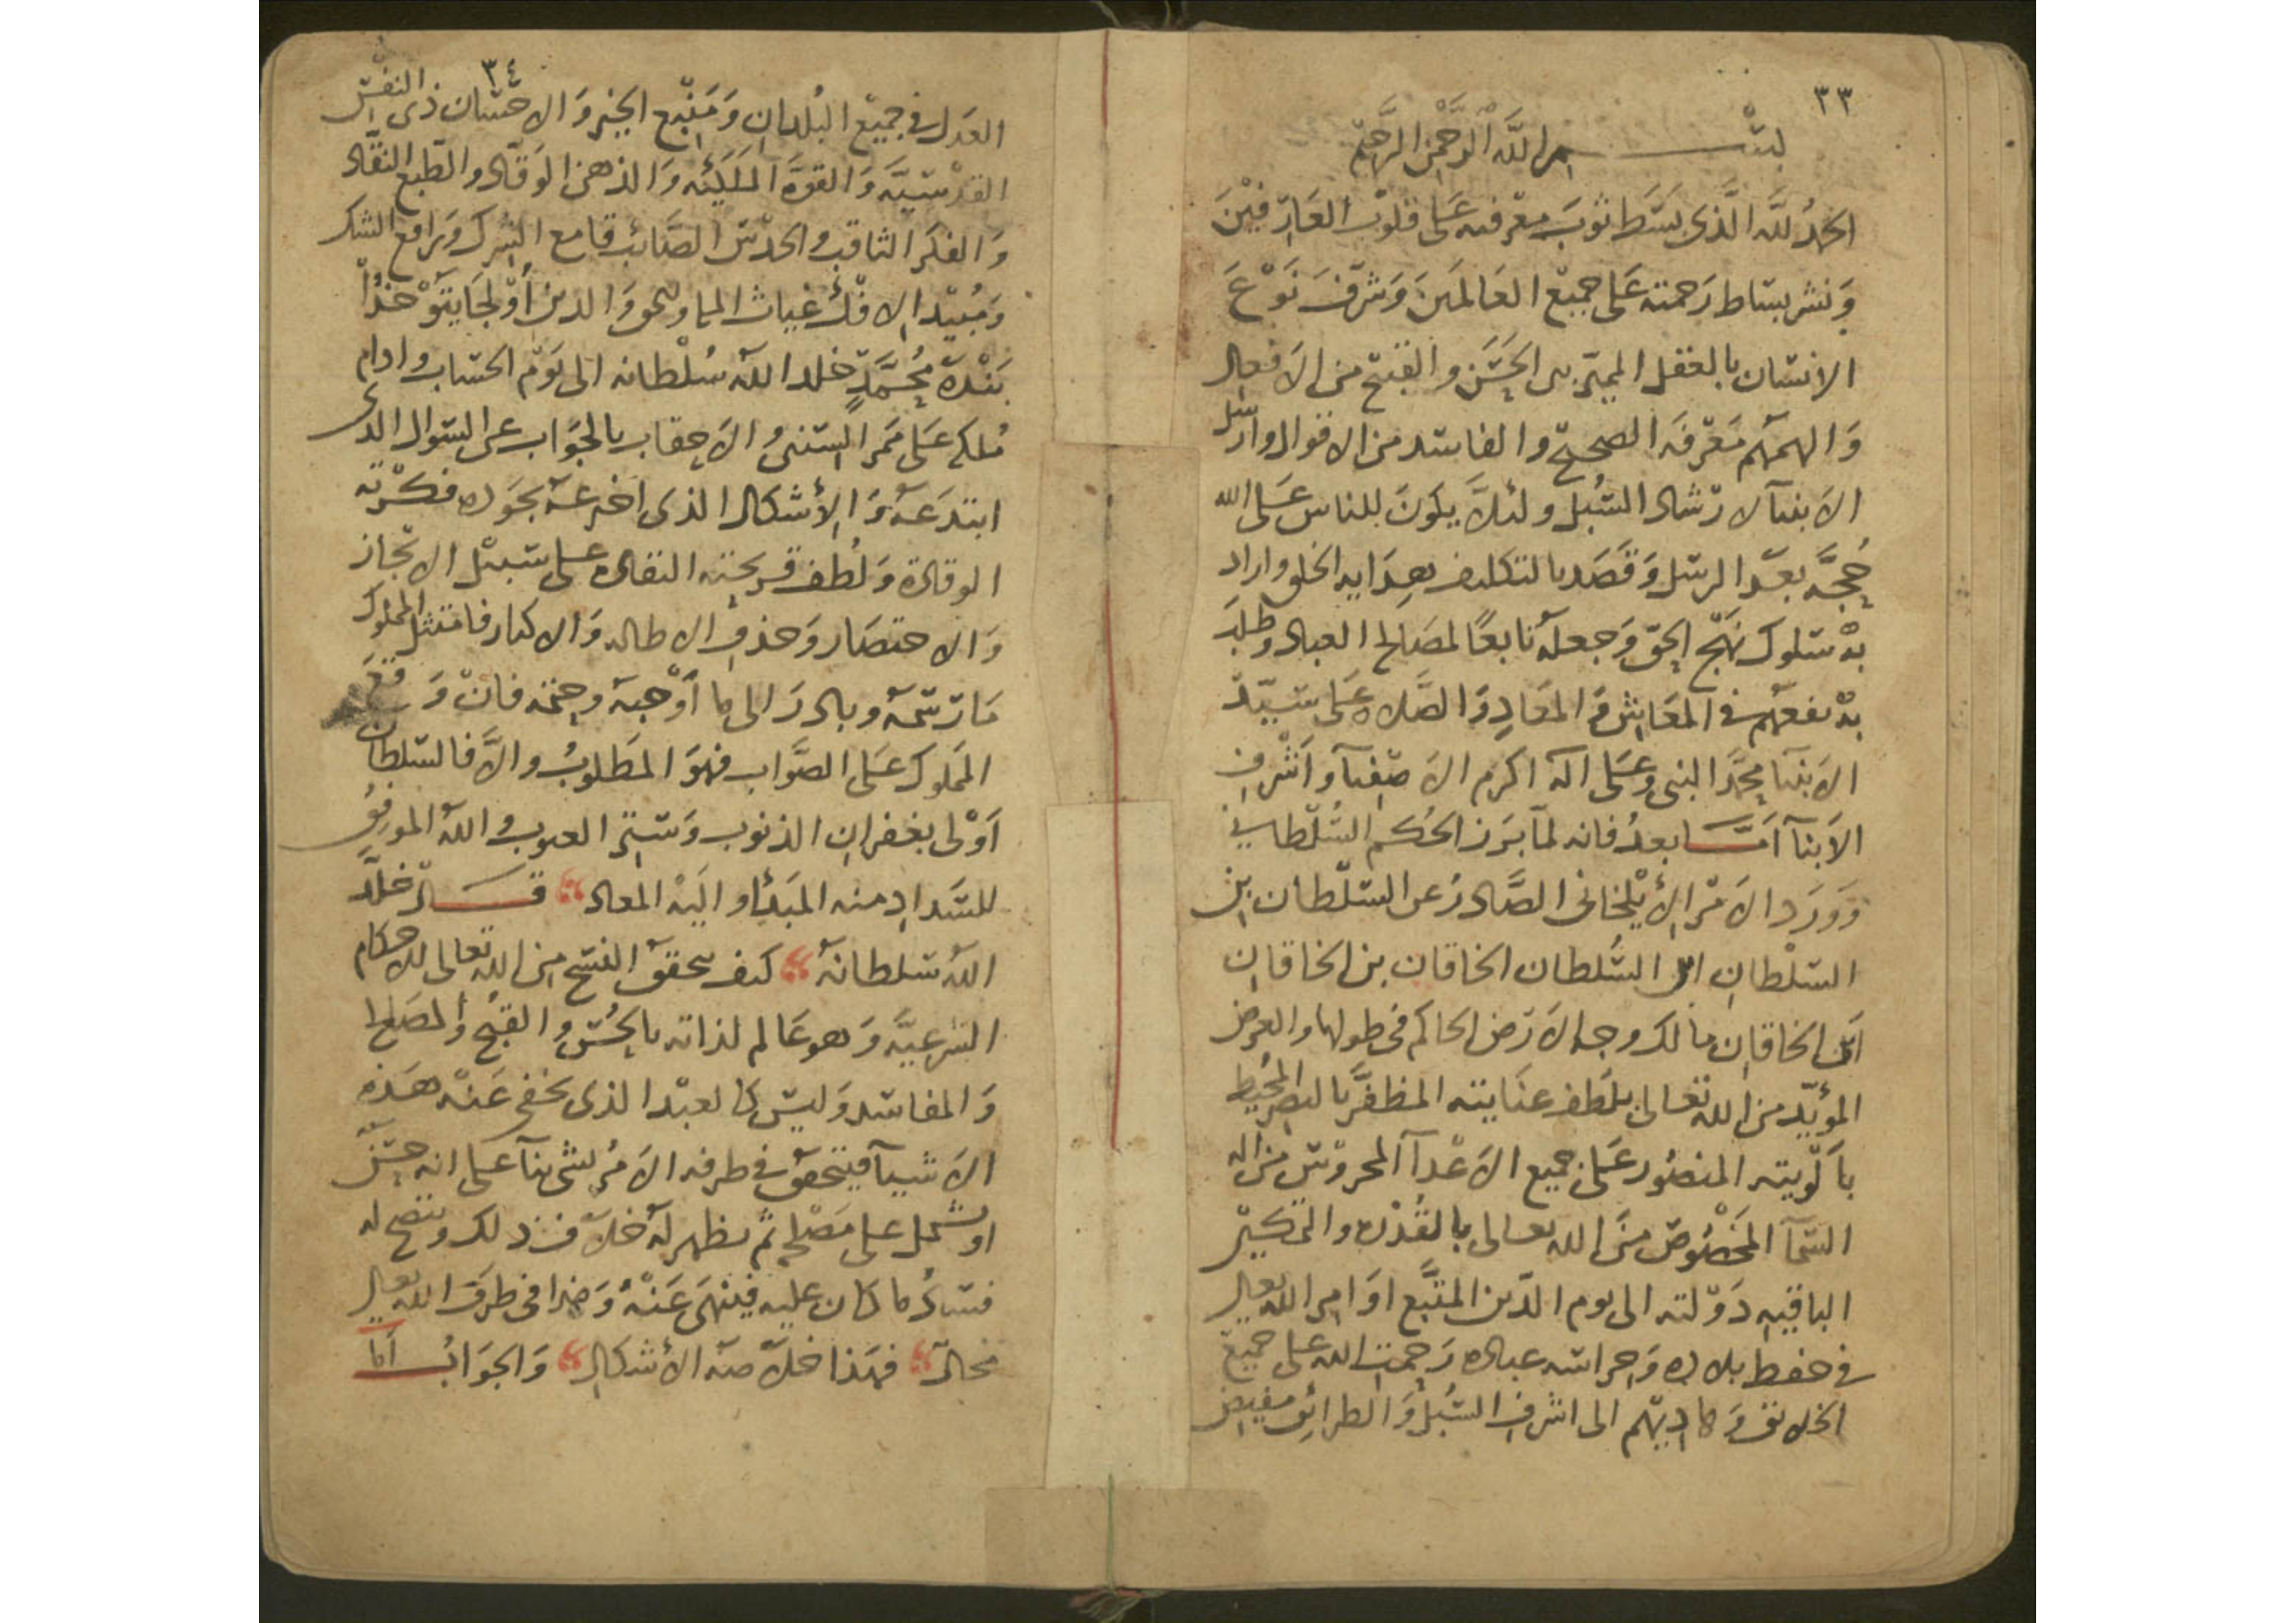 ٣٣
بسم الله الرحمن الرحيم
الحمدُ للّه الَّذى بسَطَ ثوبَ معرفته عَلى قلوب العَارفيْنَ
وَنشر بساط رَحمته عَلى جميع العَالَمينَ وَشرّفَ نَوْعَ
الانسان بالعقل المميّز بين الحَسَن والقبيح من الاَفعال
وَالهمهُم مَعْرفَه الصحيح والفاسد من الاقوال وارسَل
الاَنبيآ لارشاد السُبل ولئلاَّ يكونَ للناس عَلى الله
حُجَّه بعدَ الرسل وَقَصَد بالتكليف هِدَايه الخلق واراد
به سلوك نهَج الحق وَجعلهُ تابعًا لمصَالح العباد وطلبَ
به نفعهم فى المعَاش وَالمعَادِ وَالصَّلاه عَلى سَيّد
الاَنبيآ محمَّد النبى وعَلى اله اكرم الاَصفيآ وَاَشْرف
الاَبنآ اَمّـا بعدُ فانه لمّا بَرَز الحُكم السُّلطانى
وَوَرَد الاَمْر الأيْلخانى الصَّادرُ عن السّلطان بن
السلْطانِ ابن السُّلطان الخاقان بن الخاقان
ابن الخاقان مالك وجه الاَرَض الحاكم فى طولها والعرض
المؤيّد من الله تعالى بلطف عنَايته المظفَّر بالنصر المحُيط
بأَلْوِيته المنصُور عَلى جميع الاَعْدآ المحروس من اله
السّمآ المَخصُوصُ منَ الله تعالى بالقُدْره والتمكيْن
الباقيه دَوْلته الى يوم الدّين المتَّبع اوَامر الله تعالى
فى حفظ بلاده وَحراسَه عباده رَحمَة الله على جميع
الخلائق وَهاديْهم الى اشرف السُبُل وَالطرائق مفيض
٣٤
العَدل فى جميْع البُلدانِ وَمَنْبع الخيْر وَالاحسَان ذى النفْس
القدْسيَّه وَالقوة المَلَكيّه وَالذهن الوَقّاد والطبع النقّاد
وَالفكر الثاقب والحدْس الصَائب قامع الشِرك وَرافع الشك
وَمُبيْد الافْك غياث الملة والحق وَالدين أوْلجَايتَوْ خدُا
بَنْدهْ مُحَمَّدٍ خلد الله سُلْطانه الى يَوْم الحسَاب وادام
مُلكه عَلى مَمر السّنين والاَحقاب بالجوَاب عن السّوال الذى
ابتدَعَهُ وَالأشكال الذى اخترعَهُ بجَوده فكْرته
الوقادة وَلُطف قريحته النقاده على سَبيْل الانجاز
وَالاختصَار وَحذف الاطاله وَالاكثار فامتثل المملوك
مَا رَسَمهُ وبادرَ الى ما أوْجبهُ وحتمه فان وَقعَ
المَملوك عَلى الصَّواب فهوَ المَطلوبُ والاَّ فالسّلطان
اَوْلى بغفران الذنوب وَسَتْر العيوب واللهُ الموفق
للسَّدادِ منه المَبدَأ واليْه المعاد قــال خلّد
اللهُ سلطانهُ كيف يتحققُ النسْخ من الله تعالى للاحكام
الشرعيَّه وَهو عَالم لذاته بالحُسْن والقبْح والمصَالح
وَالمفاسد وَليسَ كالعبْد الذى يخفى عَنْه هَذه
الاَشيآ فيتحققُ فى طرفه الاَمْرُ بشى بنآ على انه حسَن
او يشتمل على مَصْلحه ثم يظهر لهُ خلاف ذلك وَيتضح له
فسَادُ ما كان عليه فينْهَى عَنْه وَهذا فى طرَف الله تعالى
محال فهذا خلاَصَه الأشكال وَالجوَابُ أما